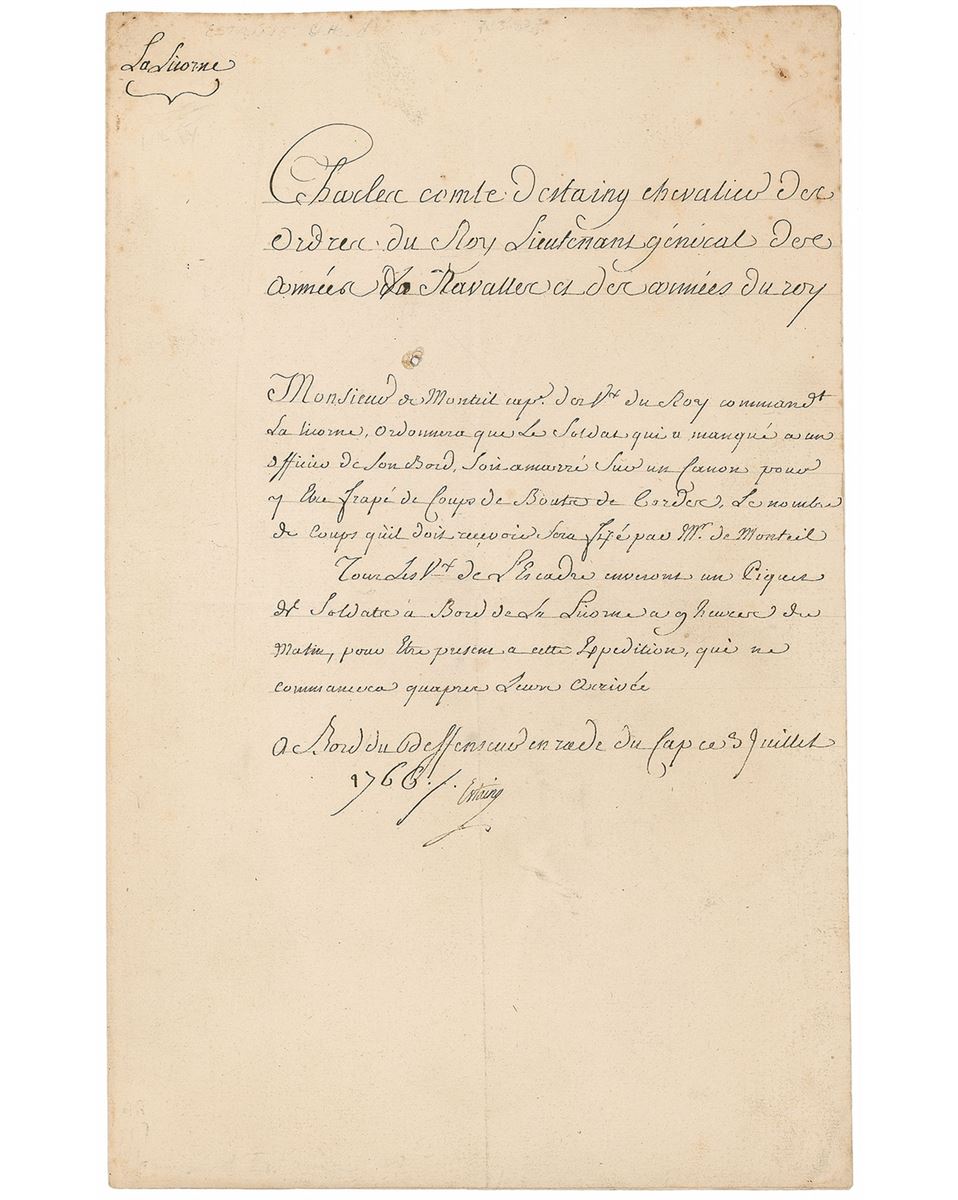 La Licorne
Charles comte Destaing chevalier des
Ordres du Roy Lieutenant général des
armées Navalles et des armées du roy
Monsieur de Monteil cap.ⁿ des V.ˣ du Roy command.ᵗ
La licorne, Ordonnera que Le Soldat qui a manqué a un
officier de Son Bord, Soit amarré Sur un Canon pour
y Etre frapé de Coups de Bouts de Cordes, Le nombre
de Coups qu'il doit reçevoir Sera fixé par M.ʳ de Monteil
Tous Les V.ˣ de L'Escadre enveront un Piquet
de Soldats à Bord de La Licorne a 9 heures du
Matin, pour Etre present a cette Expedition, qui ne
commancera quapres Leurs Arrivée
A Bord du Deffenseur en rade du Cap ce 3 Juillet
1766 ./. Estaing